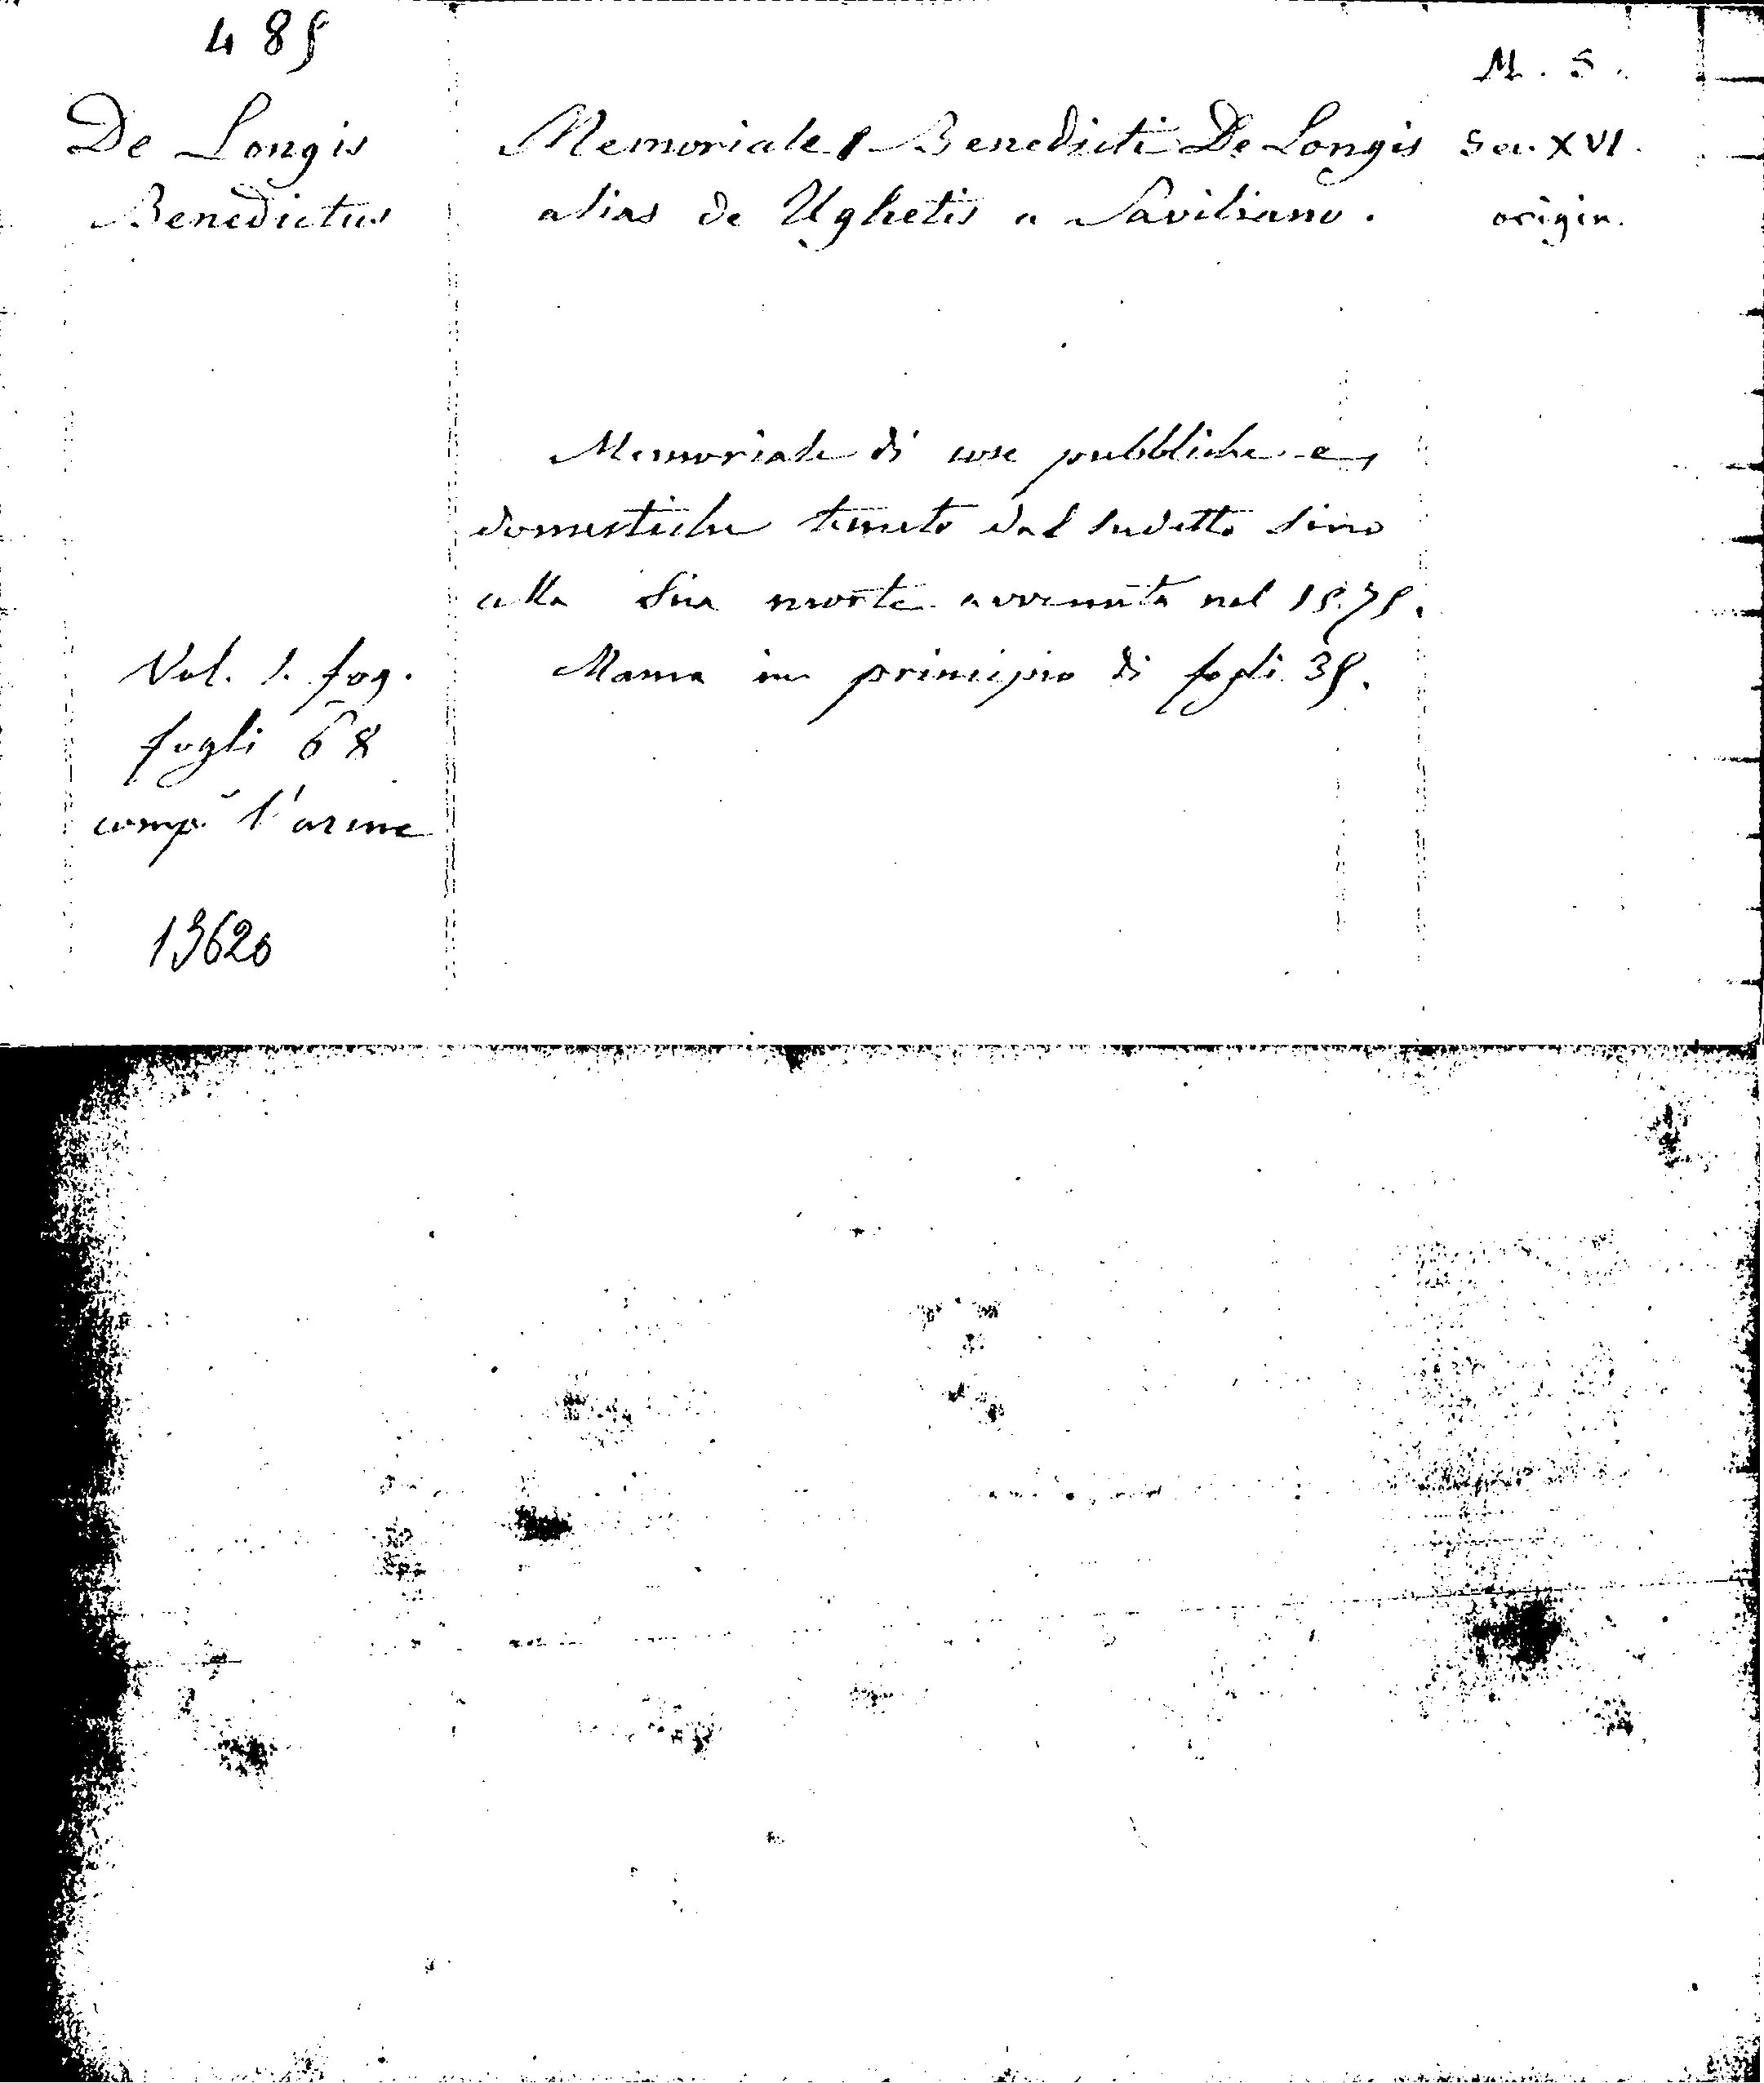 485
M. S.
De Longis
Benedictus
Memoriale Benedicti De Longis
alias de Ughetis a Saviliano.
Sec. XVI.
origin.
Memoriale di cose pubbliche e
domestiche tenuto dal sudetto sino
alla sua morte avvenuta nel 1575.
Manca in principio di fogli 35.
Vol. 1. fog.
fogli 68
comp. l'arme
13620